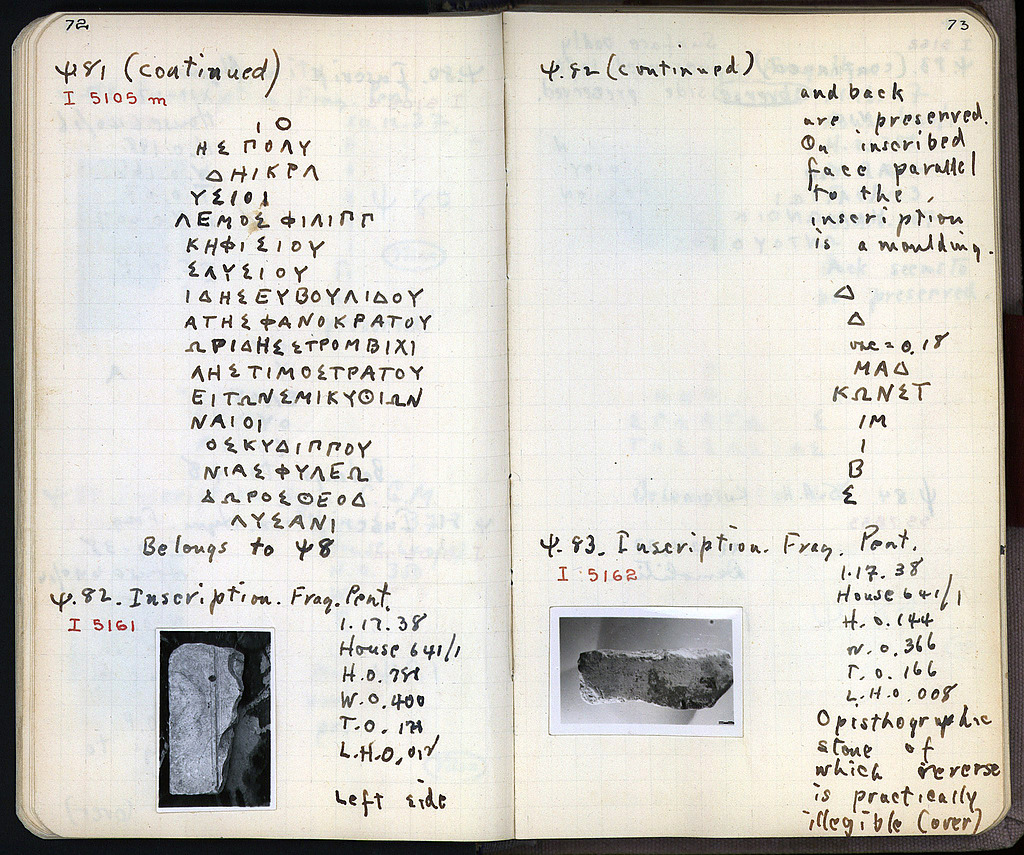 72
Ψ81 (continued)
I 5105 m
Ι Ο
ΗΣ ΠΟΛΥ
ΔΗΙΚΡΛ
ΥΣΙΟΙ
ΛΕΜΟΣ ΦΙΛΙΠΓ
ΚΗΦΙΣΙΟΥ
ΣΛΥΣΙΟΥ
ΙΔΗΣΕΥΒΟΥΛΙΔΟΥ
ΑΤΗΣΦΑΝΟΚΡΑΤΟΥ
ΩΡΙΔΗΣΣΤΡΟΜΒΙΧΙ
ΛΗΣΤΙΜΟΣΤΡΑΤΟΥ
ΕΙΤΩΝΣΜΙΚΥΘΙΩΝ
ΝΑΙΟΙ
ΟΣΚΥΔΙΠΠΟΥ
ΝΙΑΣΦΥΛΕΩ
ΔΩΡΟΣΘΕΟΔ
ΛΥΣΑΝΙ
Belongs to Ψ8
Ψ.82. Inscription. Frag. Pent.
I 5161
1.17.38
House 641/1
H.0.
W.0.400
T.0.
L.H.0,
Left side
73
Ψ.82 (continued)
and back
are preserved.
On inscribed
face parallel
to the
inscription
is a moulding.
Δ
Δ
vac = 0.18
ΜΑΔ
ΚΩΝΣΤ
ΙΜ
Ι
Β
Σ
Ψ.83. Inscription. Frag. Pent.
I 5162
1.17.38
House 641/1
H.0.144
W.0.366
T.0.166
L.H.0.008
Opisthographic
stone of
which reverse
is practically
illegible (over)